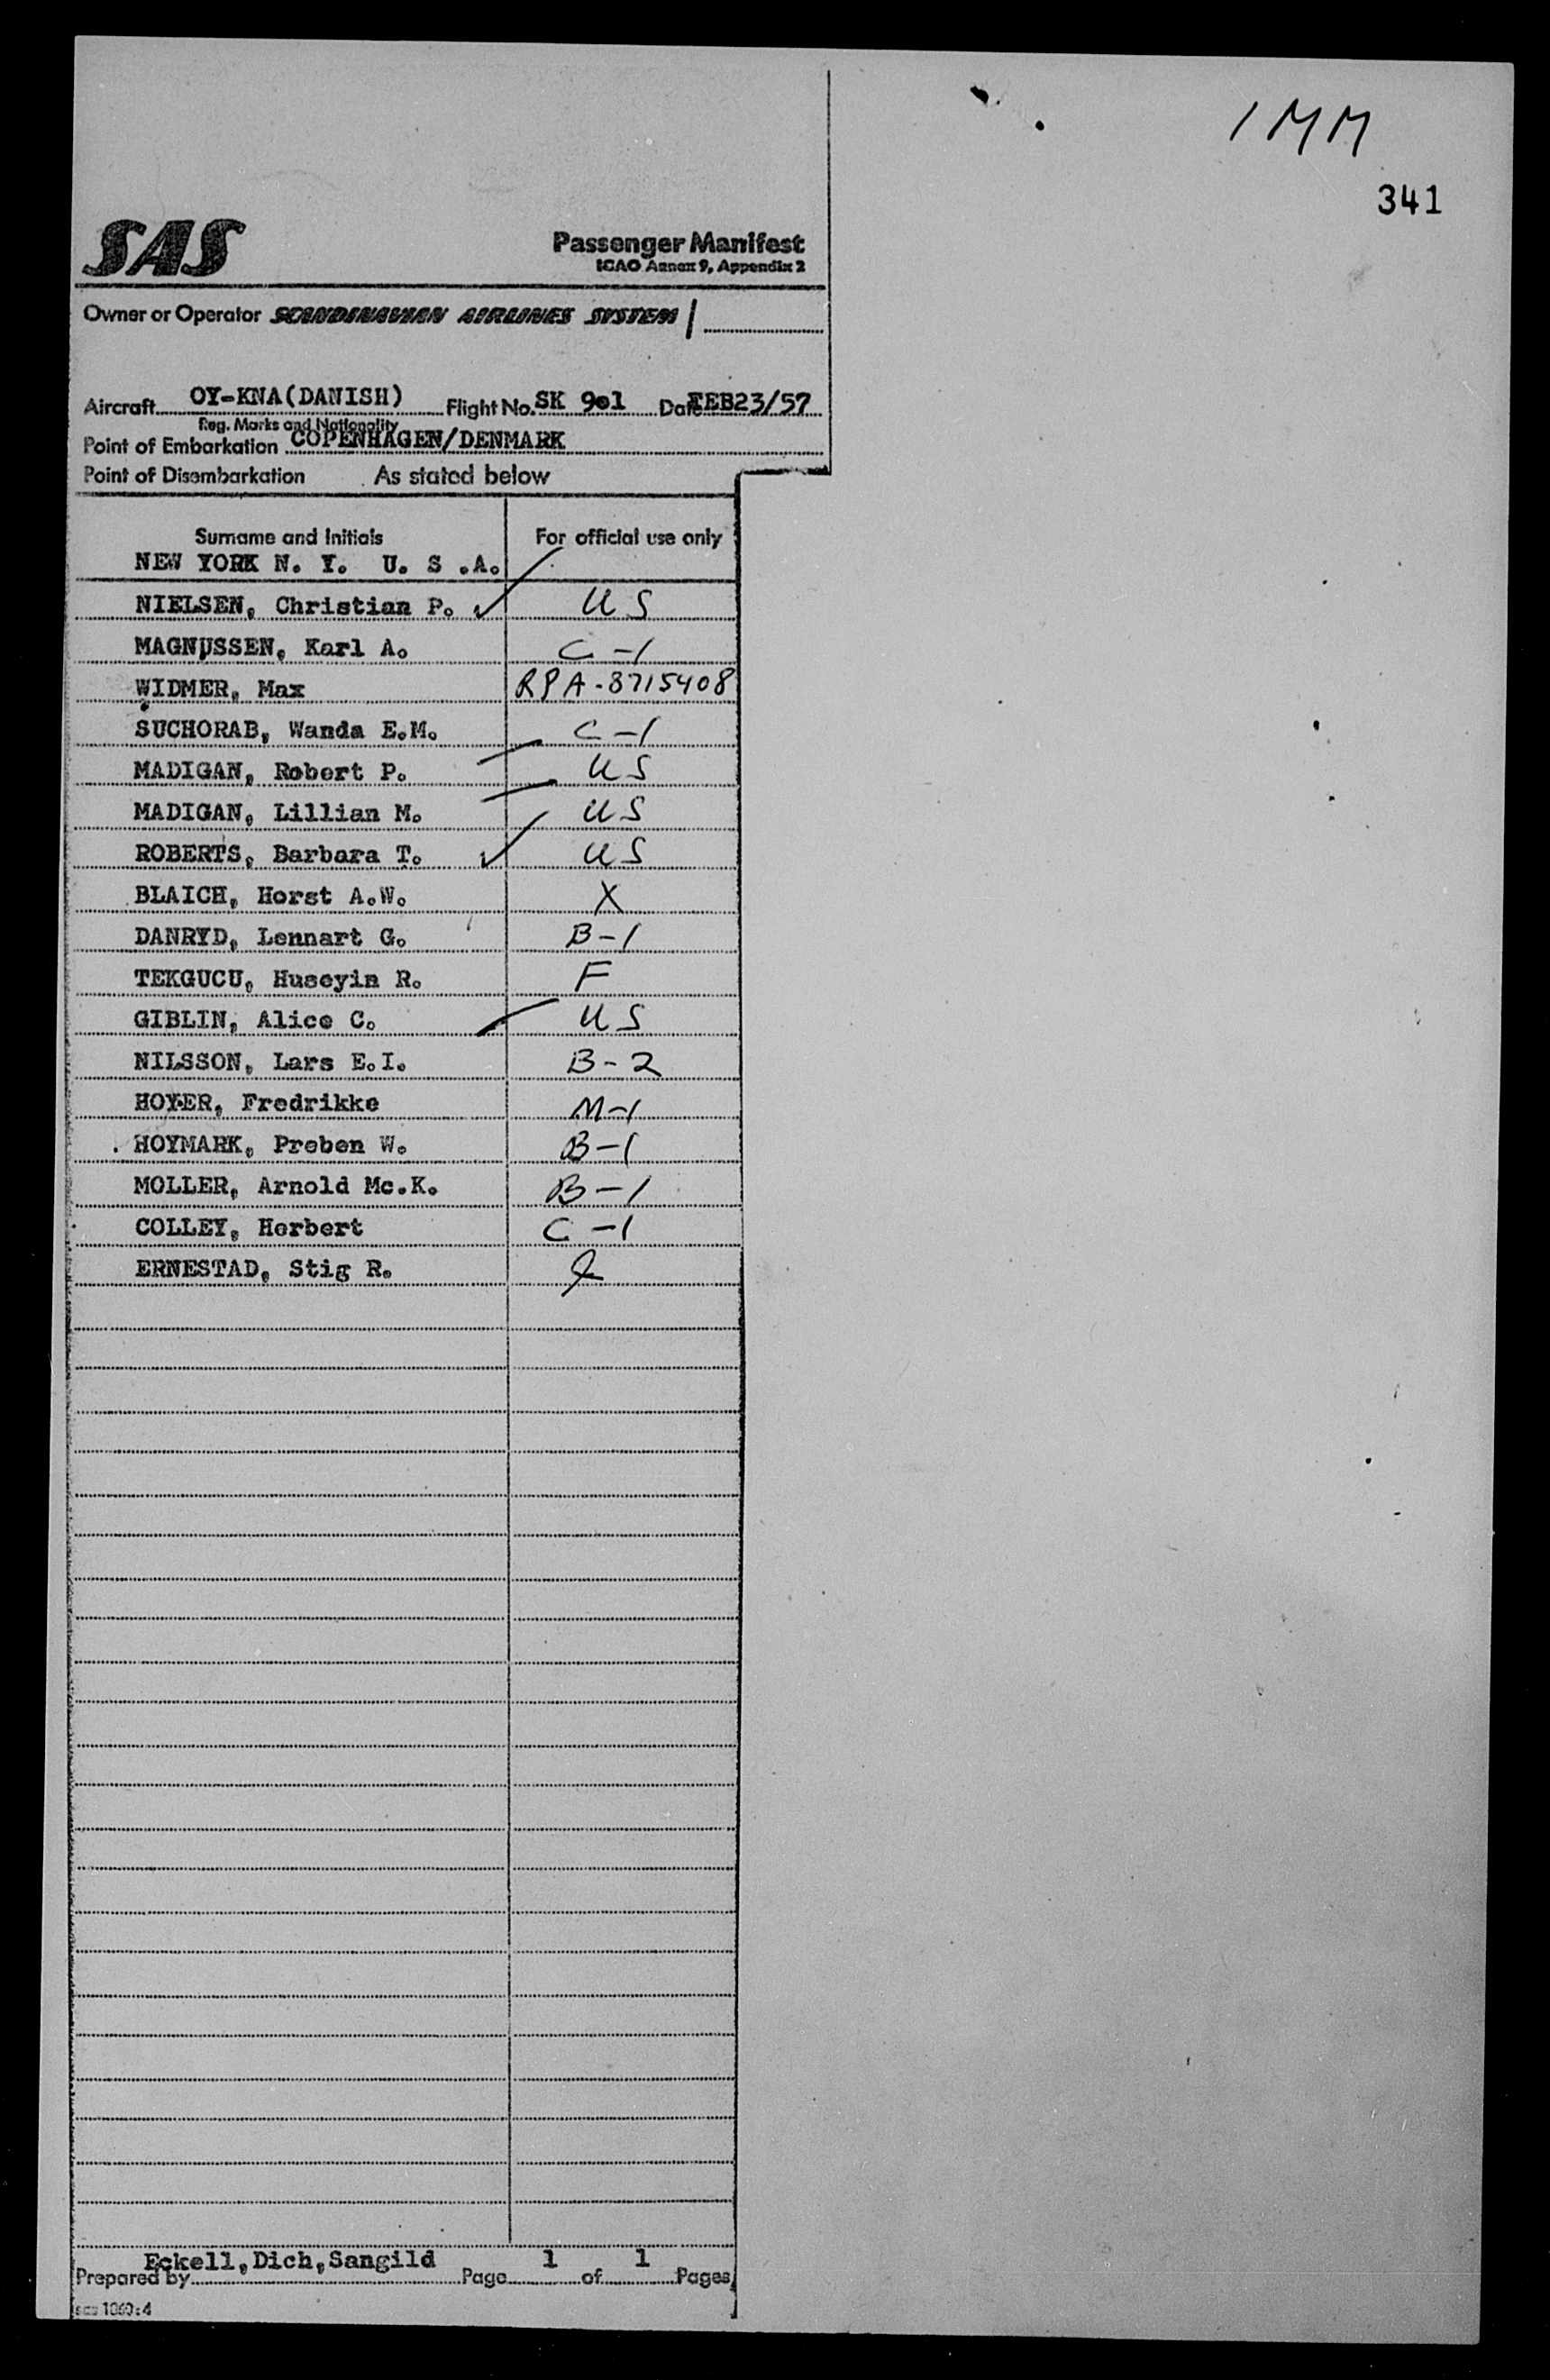 1 M M
341
SAS
Passenger Manifest
ICAO Annex 9, Appendix 2
Owner or Operator SCANDINAVIAN AIRLINES SYSTEM
Aircraft OY-KNA(DANISH) Flight No. SK 901 Date FEB23/57
Reg. Marks and Nationality
Point of Embarkation COPENHAGEN/DENMARK
Point of Disembarkation As stated below
Surname and Initials For official use only
NEW YORK N. Y. U. S .A.
NIELSEN, Christian P. US
MAGNUSSEN, Karl A. C-1
WIDMER, Max RPA-8715408
SUCHORAB, Wanda E.M. C-1
MADIGAN, Robert P. US
MADIGAN, Lillian M. US
ROBERTS, Barbara T. US
BLAICH, Horst A.W. X
DANRYD, Lennart G. B-1
TEKGUCU, Huseyin R. F
GIBLIN, Alice C. US
NILSSON, Lars E.I. B-2
HOYER, Fredrikke M-1
HOYMARK, Preben W. B-1
MOLLER, Arnold Mc.K. B-1
COLLEY, Herbert C-1
ERNESTAD, Stig R.
Prepared by Eckell,Dich,Sangild Page 1 of 1 Pages
sas 1060:4